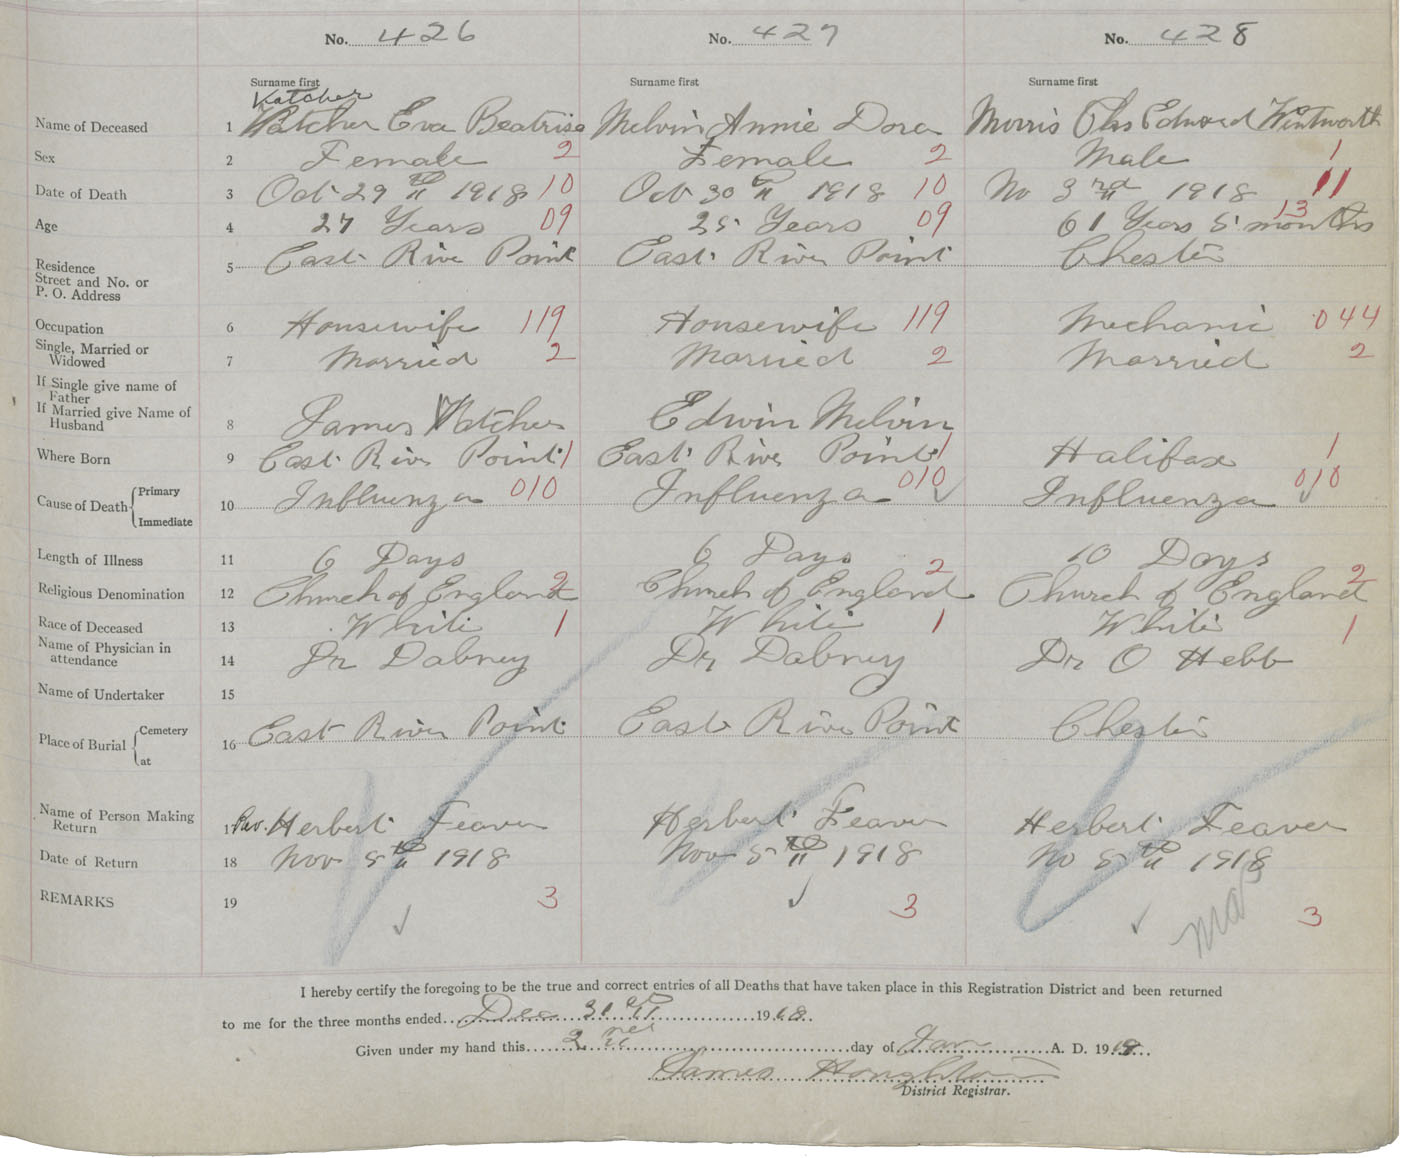 No. 426 No. 427 No. 428
Surname first Surname first Surname first
Vatcher
Name of Deceased 1 Vatcher Eva Beatrise Melvin Annie Dora Morris Chs Edward Wintworth
Sex 2 Female 2 Female 2 Male 1
Date of Death 3 Oct 29th 1918 10 Oct 30th 1918 10 No 3rd 1918 11
Age 4 27 Years 09 25 Years 09 61 Years 5 months 13
Residence Street and No. or P. O. Address 5 East River Point East River Point Chester
Occupation 6 Housewife 119 Housewife 119 Mechanic 044
Single, Married or Widowed 7 Married 2 Married 2 Married 2
If Single give name of Father
If Married give Name of Husband 8 James Vatcher Edwin Melvin
Where Born 9 East River Point 1 East River Point 1 Halifax 1
Cause of Death Primary Immediate 10 Influenza 010 Influenza 010 Influenza 010
Length of Illness 11 6 Days 6 Days 10 Days
Religious Denomination 12 Church of England 2 Church of England 2 Church of England 2
Race of Deceased 13 White 1 White 1 White 1
Name of Physician in attendance 14 Dr Dabney Dr Dabney Dr O Hebb
Name of Undertaker 15
Place of Burial Cemetery at 16 East River Point East River Point Chester
Name of Person Making Return 17 Rev. Herbert Feaver Herbert Feaver Herbert Feaver
Date of Return 18 Nov 5th 1918 Nov 5th 1918 No 5th 1918
REMARKS 19 3 3 3
I hereby certify the foregoing to be the true and correct entries of all Deaths that have taken place in this Registration District and been returned
to me for the three months ended Dec 31st 1918
Given under my hand this 2nd day of Jan A. D. 1919
James Houghton
District Registrar.